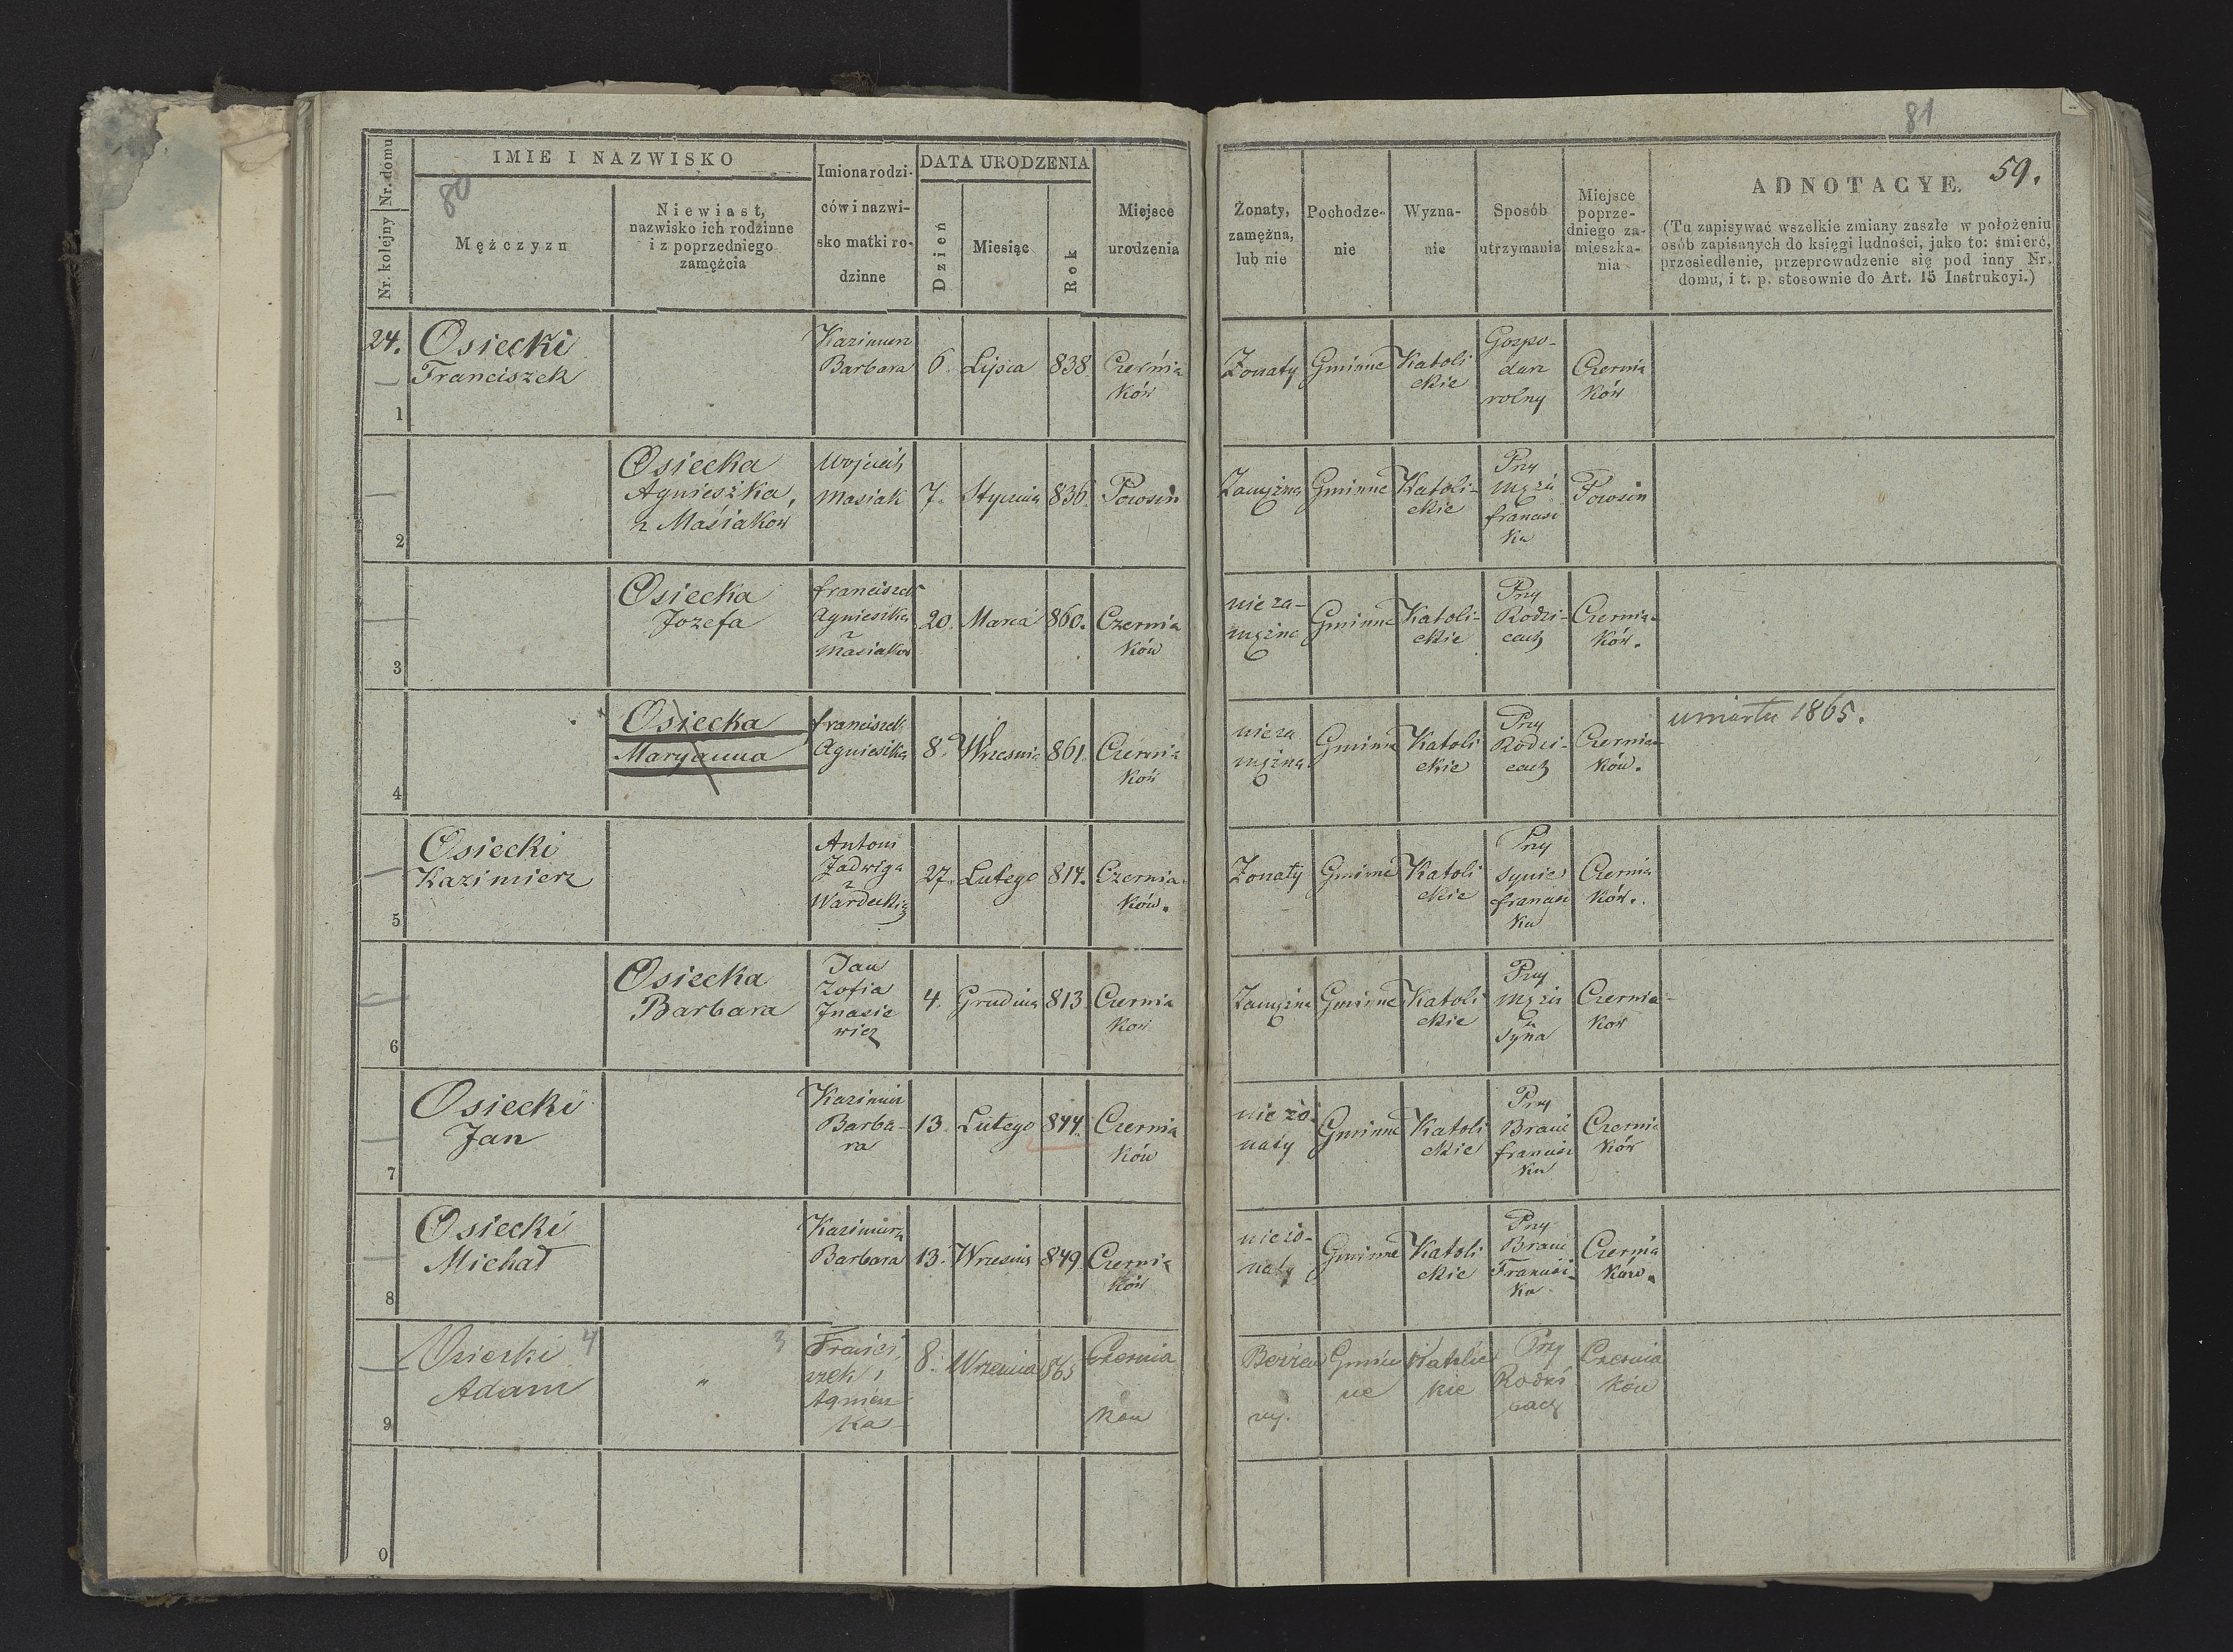 81
59.
Nr. kolejny Nr. domu
IMIE I NAZWISKO
80
Mężczyzn
Niewiast,
nazwisko ich rodzinne
i z poprzedniego
zamężcia
Imiona rodzi-
ców i nazwi-
sko matki ro-
dzinne
DATA URODZENIA
Dzień
Miesiąc
Rok
Miejsce
urodzenia
Żonaty,
zamężna,
lub nie
Pochodze-
nie
Wyzna-
nie
Sposób
utrzymania
Miejsce
poprze-
dniego za-
mieszka-
nia
ADNOTACYE.
(Tu zapisywać wszelkie zmiany zaszłe w położeniu
osób zapisanych do księgi ludności, jako to: śmierć,
przesiedlenie, przeprowadzenie się pod inny Nr.
domu, i t. p. stosownie do Art. 15 Instrukcyi.)
24.
1
Osiecki
Franciszek
Kazimierz
Barbara
6.
Lipca
838.
Czernia
ków
Żonaty
Gminne
Katoli
ckie
Gospo-
darz
rolny
Czernia
ków
2
Osiecka
Agnieszka,
z Masiaków
Wojciech
Masiak
7.
Stycznia
836.
Powsin
Zamężna
Gminne
Katoli-
ckie
Przy
Mężu
francisz
ku
Powsin
3
Osiecka
Jozefa
franciszek
Agnieszka
z
Masiaków
20.
Marca
860.
Czernia
ków
nieza-
mężna
Gminne
Katoli-
ckie
Przy
Rodzi-
cach
Czernia-
ków.
4
Osiecka
Maryanna
franciszek
Agnieszka
8.
Wrzesnia
861.
Czernia
ków
nieza
mężna
Gminne
Katoli
ckie
Przy
Rodzi-
cach
Czernia-
ków.
umarła 1865.
5
Osiecki
Kazimierz
Antoni
Jadwiga
z
Wardeckich
27.
Lutego
814.
Czernia-
ków.
Żonaty
Gminne
Katoli
ckie
Przy
synie
francisz
ku
Czernia
ków.
6
Osiecka
Barbara
Jan
Zofia
4.
Grudnia
813.
Czernia
ków
Zamężna
Gminne
Katoli
ckie
Przy
Mężu
u
Syna
Czernia-
ków
7
Osiecki
Jan
Kazimierz
Barba-
ra
13.
Lutego
844.
Czernia
ków
nieżo-
naty
Gminne
Katoli
ckie
Przy
Bracie
francisz
ku
Czernia
ków
8
Osiecki
Michał
Kazimierz
Barbara
13.
Wrzesnia
849.
Czernia
ków
nieżo-
naty
Gminne
Katoli
ckie
Przy
Bracie
Francisz-
ku
Czernia
ków.
9
Osiecki 4
Adam
„
3
Francis
zek i
Agniesz
ka
8.
Wrzesnia
865
Czernia
ków
Bezżen
ny.
Gmin
ne
Katolic
kie
Przy
Rodzi
cach
Czernia
ków
0